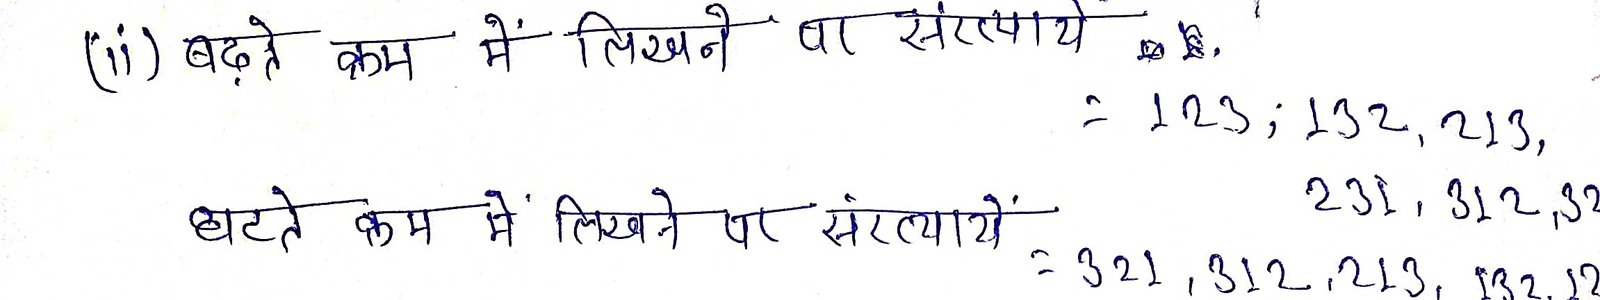 (ii) बढ़ते क्रम में लिखने पर संख्याये
= 123; 132, 213,
231, 312, 32
घटते क्रम में लिखने पर संख्यायें
= 321, 312, 213, 132, 12